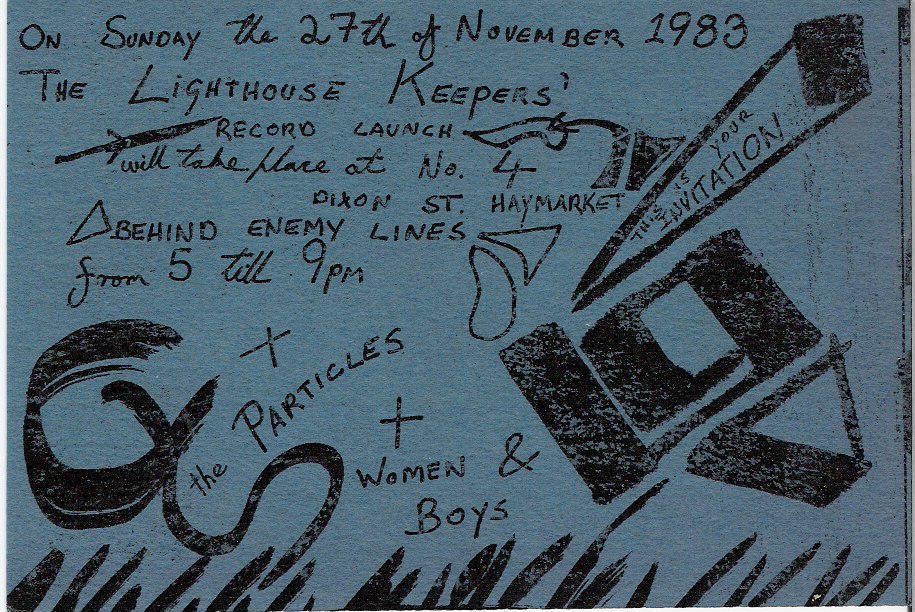 On Sunday the 27th of November 1983
The Lighthouse Keepers'
RECORD LAUNCH
will take place at No. 4
DIXON ST. HAYMARKET
BEHIND ENEMY LINES
from 5 till 9pm
THIS IS YOUR
INVITATION
+
the PARTICLES
+
WOMEN &
Boys